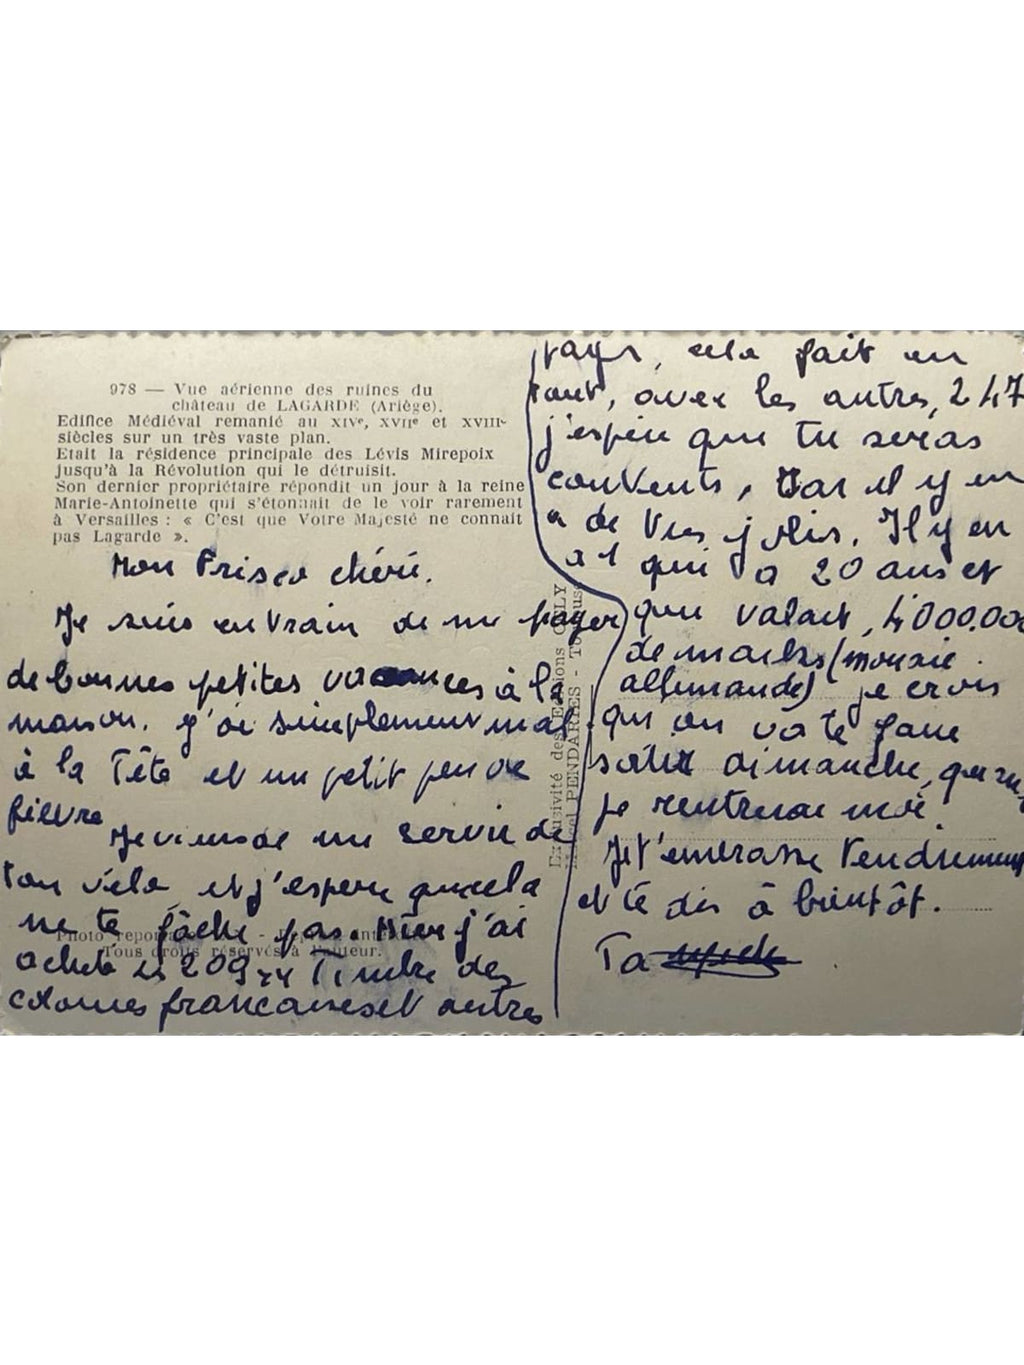 978 — Vue aérienne des ruines du
château de LAGARDE (Ariège).
Edifice Médiéval remanié au XIVe, XVIIe et XVIIIe
siècles sur un très vaste plan.
Etait la résidence principale des Lévis Mirepoix
jusqu'à la Révolution qui le détruisit.
Son dernier propriétaire répondit un jour à la reine
Marie-Antoinette qui s'étonnait de le voir rarement
à Versailles : « C'est que Votre Majesté ne connait
pas Lagarde ».
Mon Frisco chéri.
Je suis en train de me payer
de bonnes petites vacances à la
maison. j'ai simplement mal
à la Tête et un petit peu de
fièvre
Je viens de me servir de
ton vélo et j'espere que cela
ne te fâche pas. Hier j'ai
acheté 209 Timbre des
colonies francaises et autres
pays, cela fait en
tout, avec les autres, 247
j'espere que tu seras
contents, car il y en
a de très jolis. Il y en
a 1 qui a 20 ans et
qui valait 4'000.000
de marks (monaie
allemande) je crois
qu'on va te faire
sotir dimanche, quand
je rentrerai moi.
Je t'embrasse Tendrement
et te dis à bientôt.
Ta
Exclusivité des Editions
PENDARIES - Toulouse
Photo
Tous droits réservés à l'auteur.